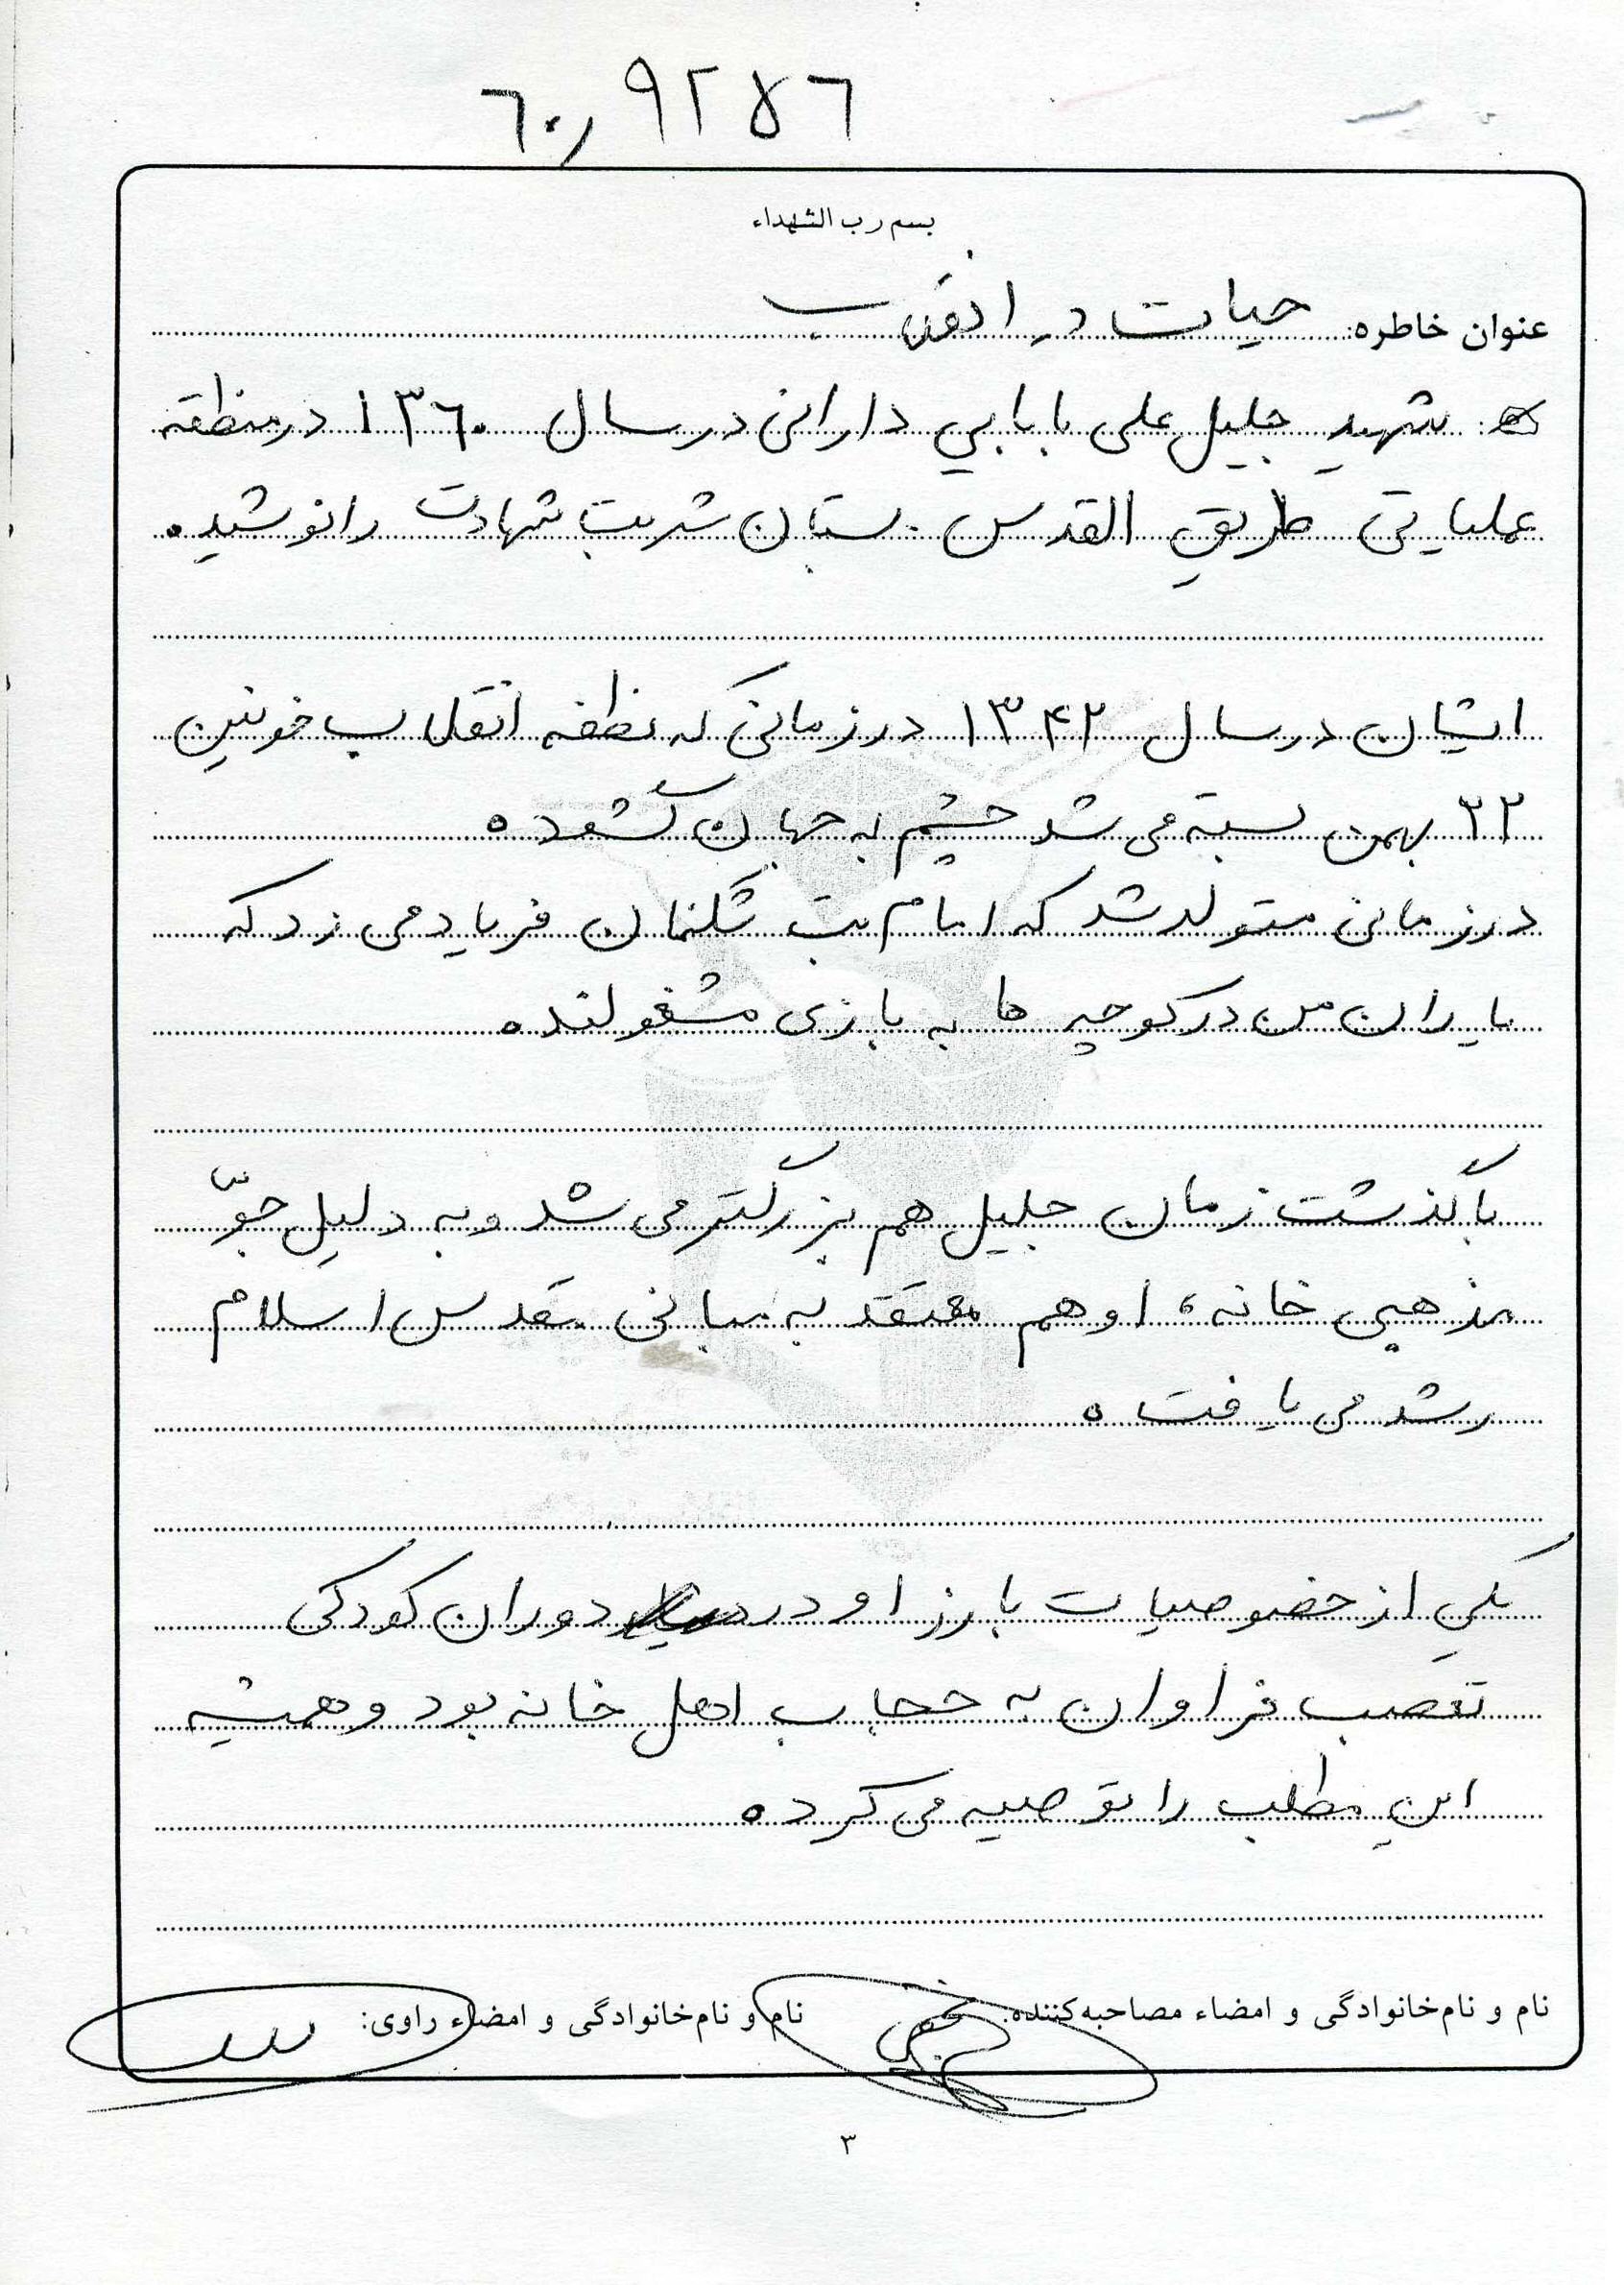 ٦٠٫٩٢٥٦
بسم رب الشهداء
عنوان خاطره: حیات در انقلاب
شهید جلیل علی بابایی دارانی در سال ۱۳۶۰ در منطقه
عملیاتی طریق القدس بستان شربت شهادت را نوشید.
ایشان در سال ۱۳۴۲ در زمانی که نطفه انقلاب خونین
۲۲ بهمن بسته می شد چشم به جهان گشود.
در زمانی متولد شد که امام بت شکنمان فریاد می زد که
یاران من در کوچه ها به بازی مشغولند.
با گذشت زمان جلیل هم بزرگتر می شد و به دلیل جوّ
مذهبی خانه، او هم معتقد به مبانی مقدس اسلام
رشد می یافت.
یکی از خصوصیات بارز او در دوران کودکی
تعصب فراوان به حجاب اهل خانه بود و همیشه
این مطلب را توصیه می کرد.
نام و نام‌خانوادگی و امضاء مصاحبه‌کننده: نام و نام‌خانوادگی و امضاء راوی:
۳